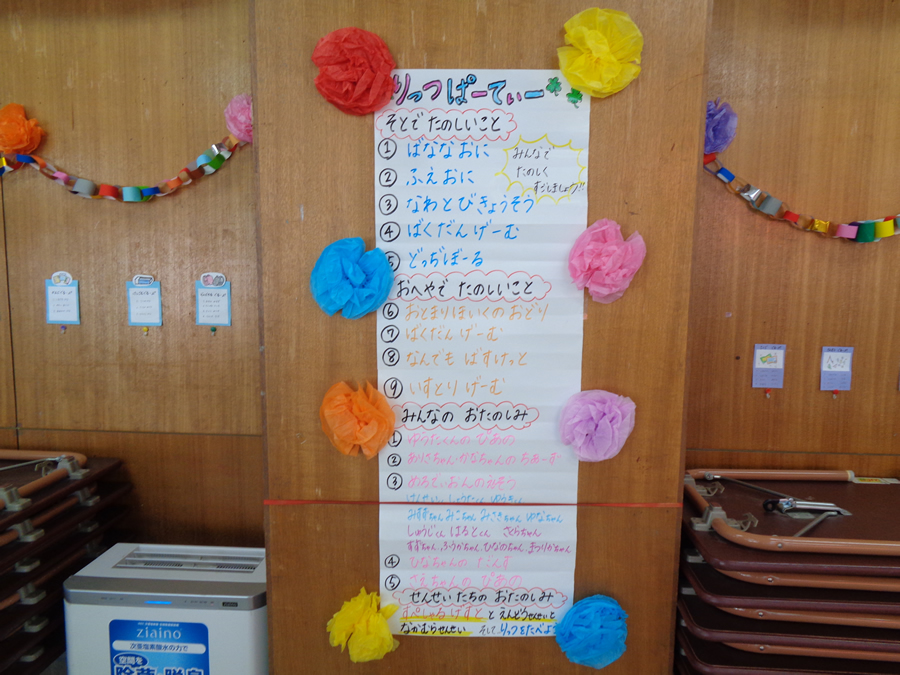 りっつぱーてぃー
そとで たのしいこと
① ばななおに
② ふえおに
③ なわとびきょうそう
④ ばくだんげーむ
⑤ どっぢぼーる
みんなで
たのしく
すごしましょう!!
おへやで たのしいこと
⑥ おとまりほいくの おどり
⑦ ばくだんげーむ
⑧ なんでも ばすけっと
⑨ いすとりげーむ
みんなの おたのしみ
① ゆうたくんの ぴあの
② ありさちゃん かなちゃんの ちあーず
③ めろでぃおんのえんそう
みすずちゃん みこちゃん みさきちゃん ゆなちゃん
しゅうじくん はるとくん さくらちゃん
すずちゃん ふうかちゃん ひなのちゃん まつりかちゃん
④ ひなちゃんの だんす
⑤ さえちゃんの ぴあの
せんせいたちの おたのしみ
すぺしゃるげすと と えんどうせんせいと
なかむらせんせい そして りっつをたべよう
ziaino
次亜塩素酸水の力で
空間を
除菌 脱臭